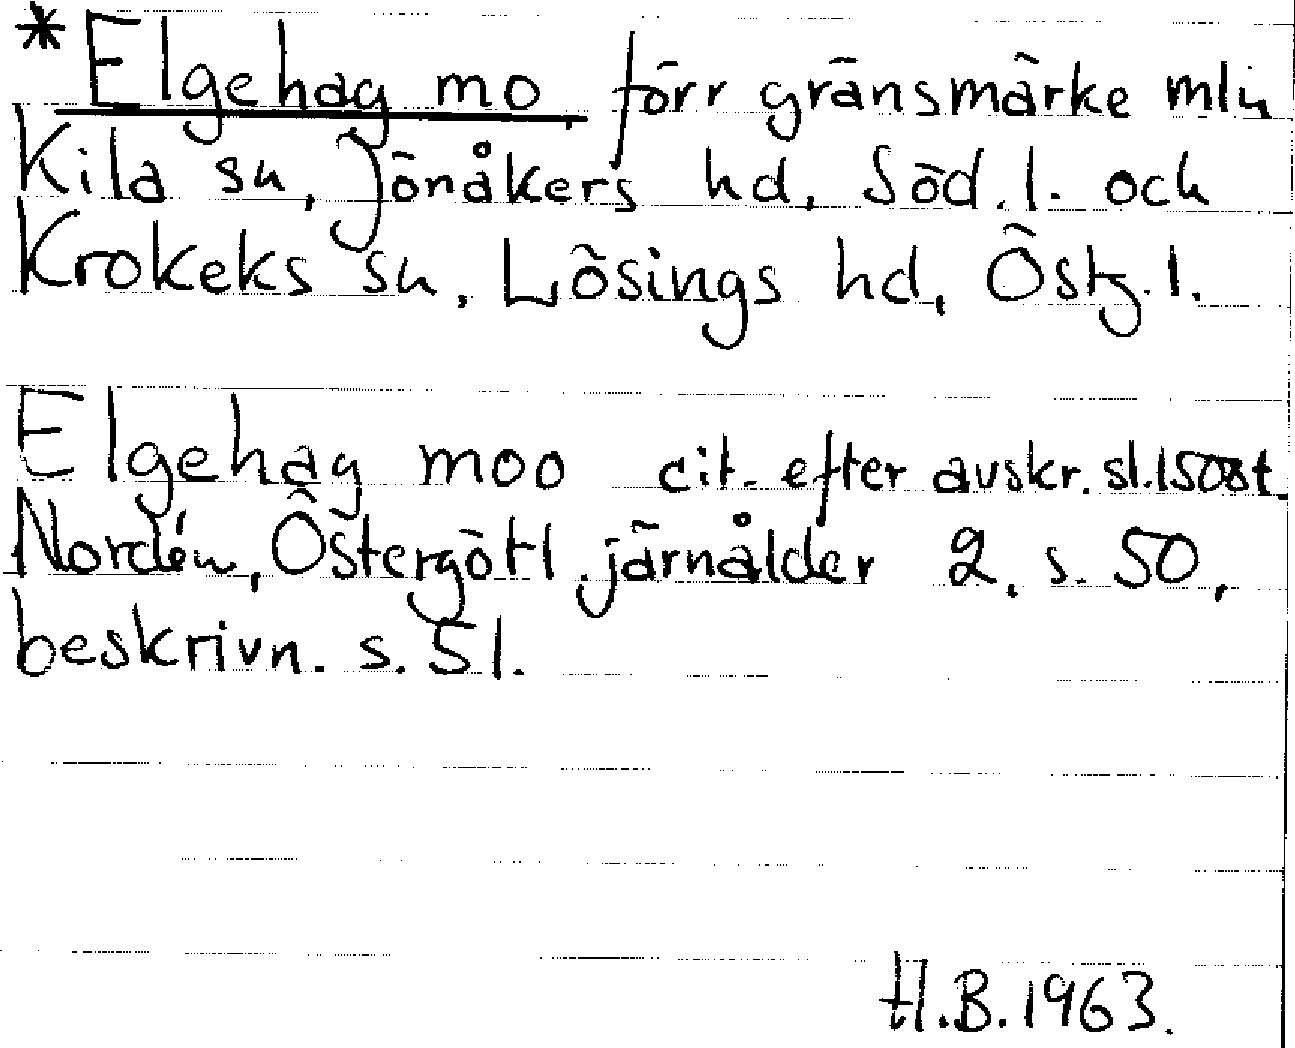 *Elgehag mo, förr gränsmärke mln
Kila sn, Jönåkers hd, Söd.l. och
Krokeks sn, Lösings hd, Östg.l.
Elgehag moo cit. efter avskr. sl.1500t
Nordén, Östergötl. järnålder 2, s. 50,
beskrivn. s. 51.
H.B. 1963.